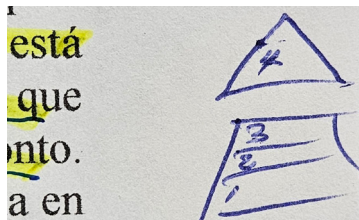 está
que
onto.
a en
4
3
2
1